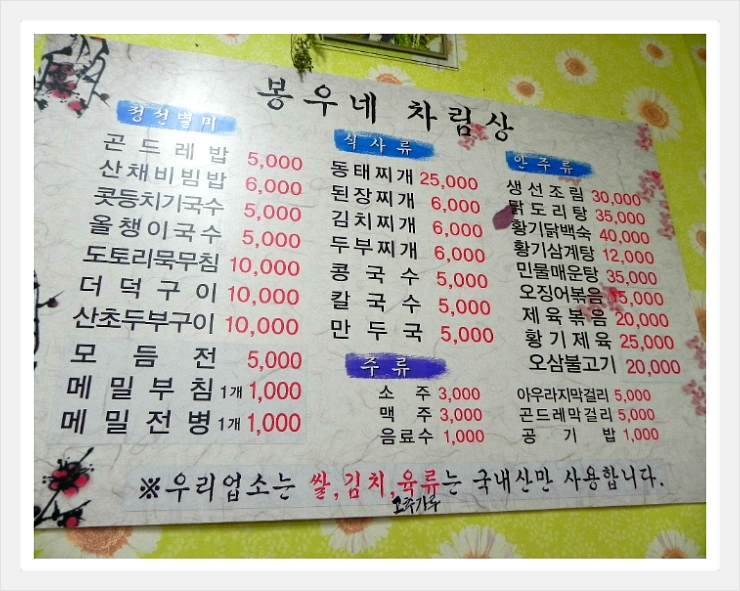 봉우네 차림상
정선별미
곤드레밥 5,000
산채비빔밥 6,000
콧등치기국수 5,000
올챙이국수 5,000
도토리묵무침 10,000
더덕구이 10,000
산초두부구이 10,000
모듬전 5,000
메밀부침 1개 1,000
메밀전병 1개 1,000
식사류
동태찌개 25,000
된장찌개 6,000
김치찌개 6,000
두부찌개 6,000
콩국수 5,000
칼국수 5,000
만두국 5,000
주류
소주 3,000
맥주 3,000
음료수 1,000
안주류
생선조림 30,000
닭도리탕 35,000
황기닭백숙 40,000
황기삼계탕 12,000
민물매운탕 35,000
오징어볶음 15,000
제육볶음 20,000
황기제육 25,000
오삼불고기 20,000
아우라지막걸리 5,000
곤드레막걸리 5,000
공기밥 1,000
※우리업소는 쌀,김치,육류는 국내산만 사용합니다.
고추가루